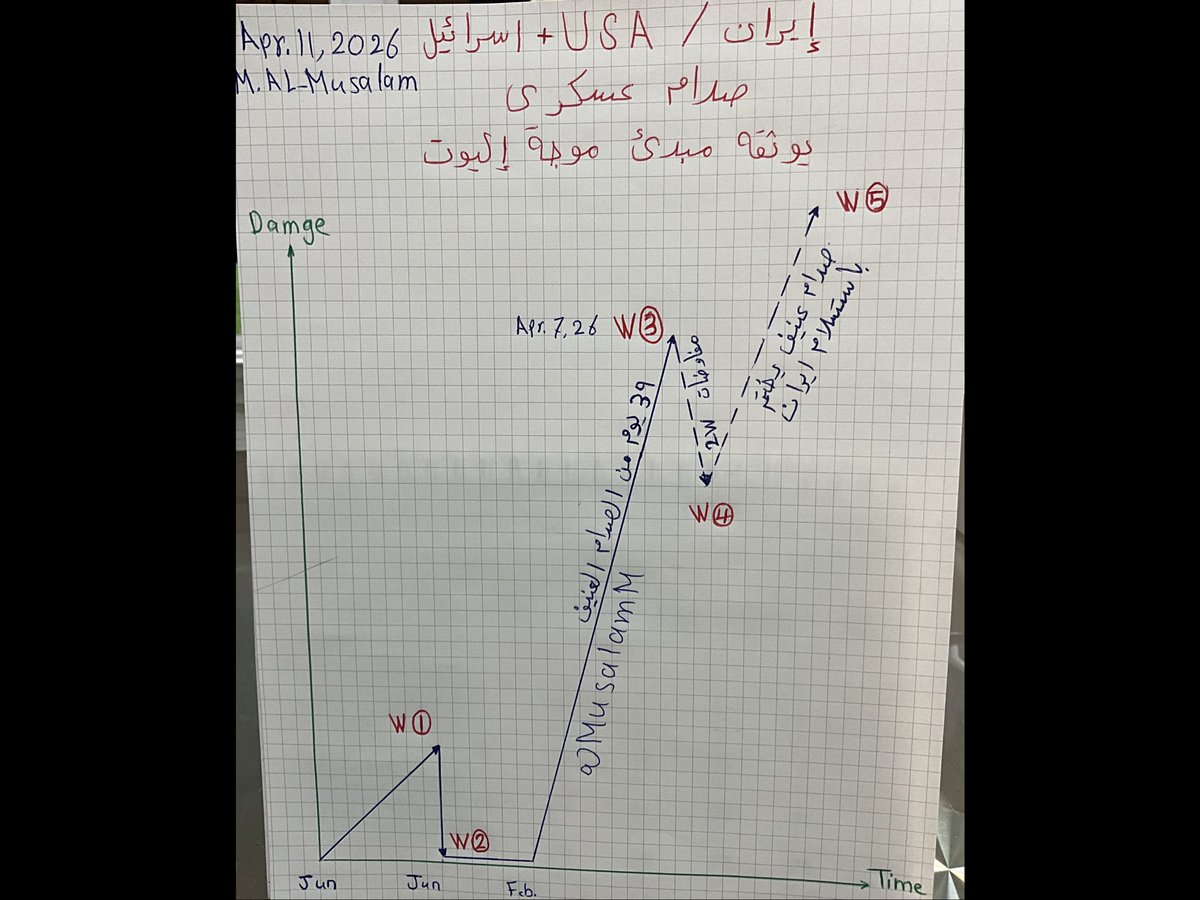 Apr. 11, 2026
M. AL-Musalam
إيران / USA + اسرائيل
صدام عسكرى
يوثقه مبدئ موجة إليوت
Damge
W⑤
Apr. 7, 26 W③
صدام عنيف يختم
باستسلام ايران
2W مفاوضات
W④
39 يوم من الصدام العنيف
@MusalamM
W①
W②
Jun
Jun
Feb.
Time